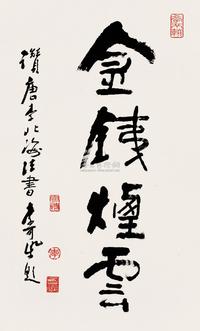 金銕煙雲
讚唐李北海法書 李可染題